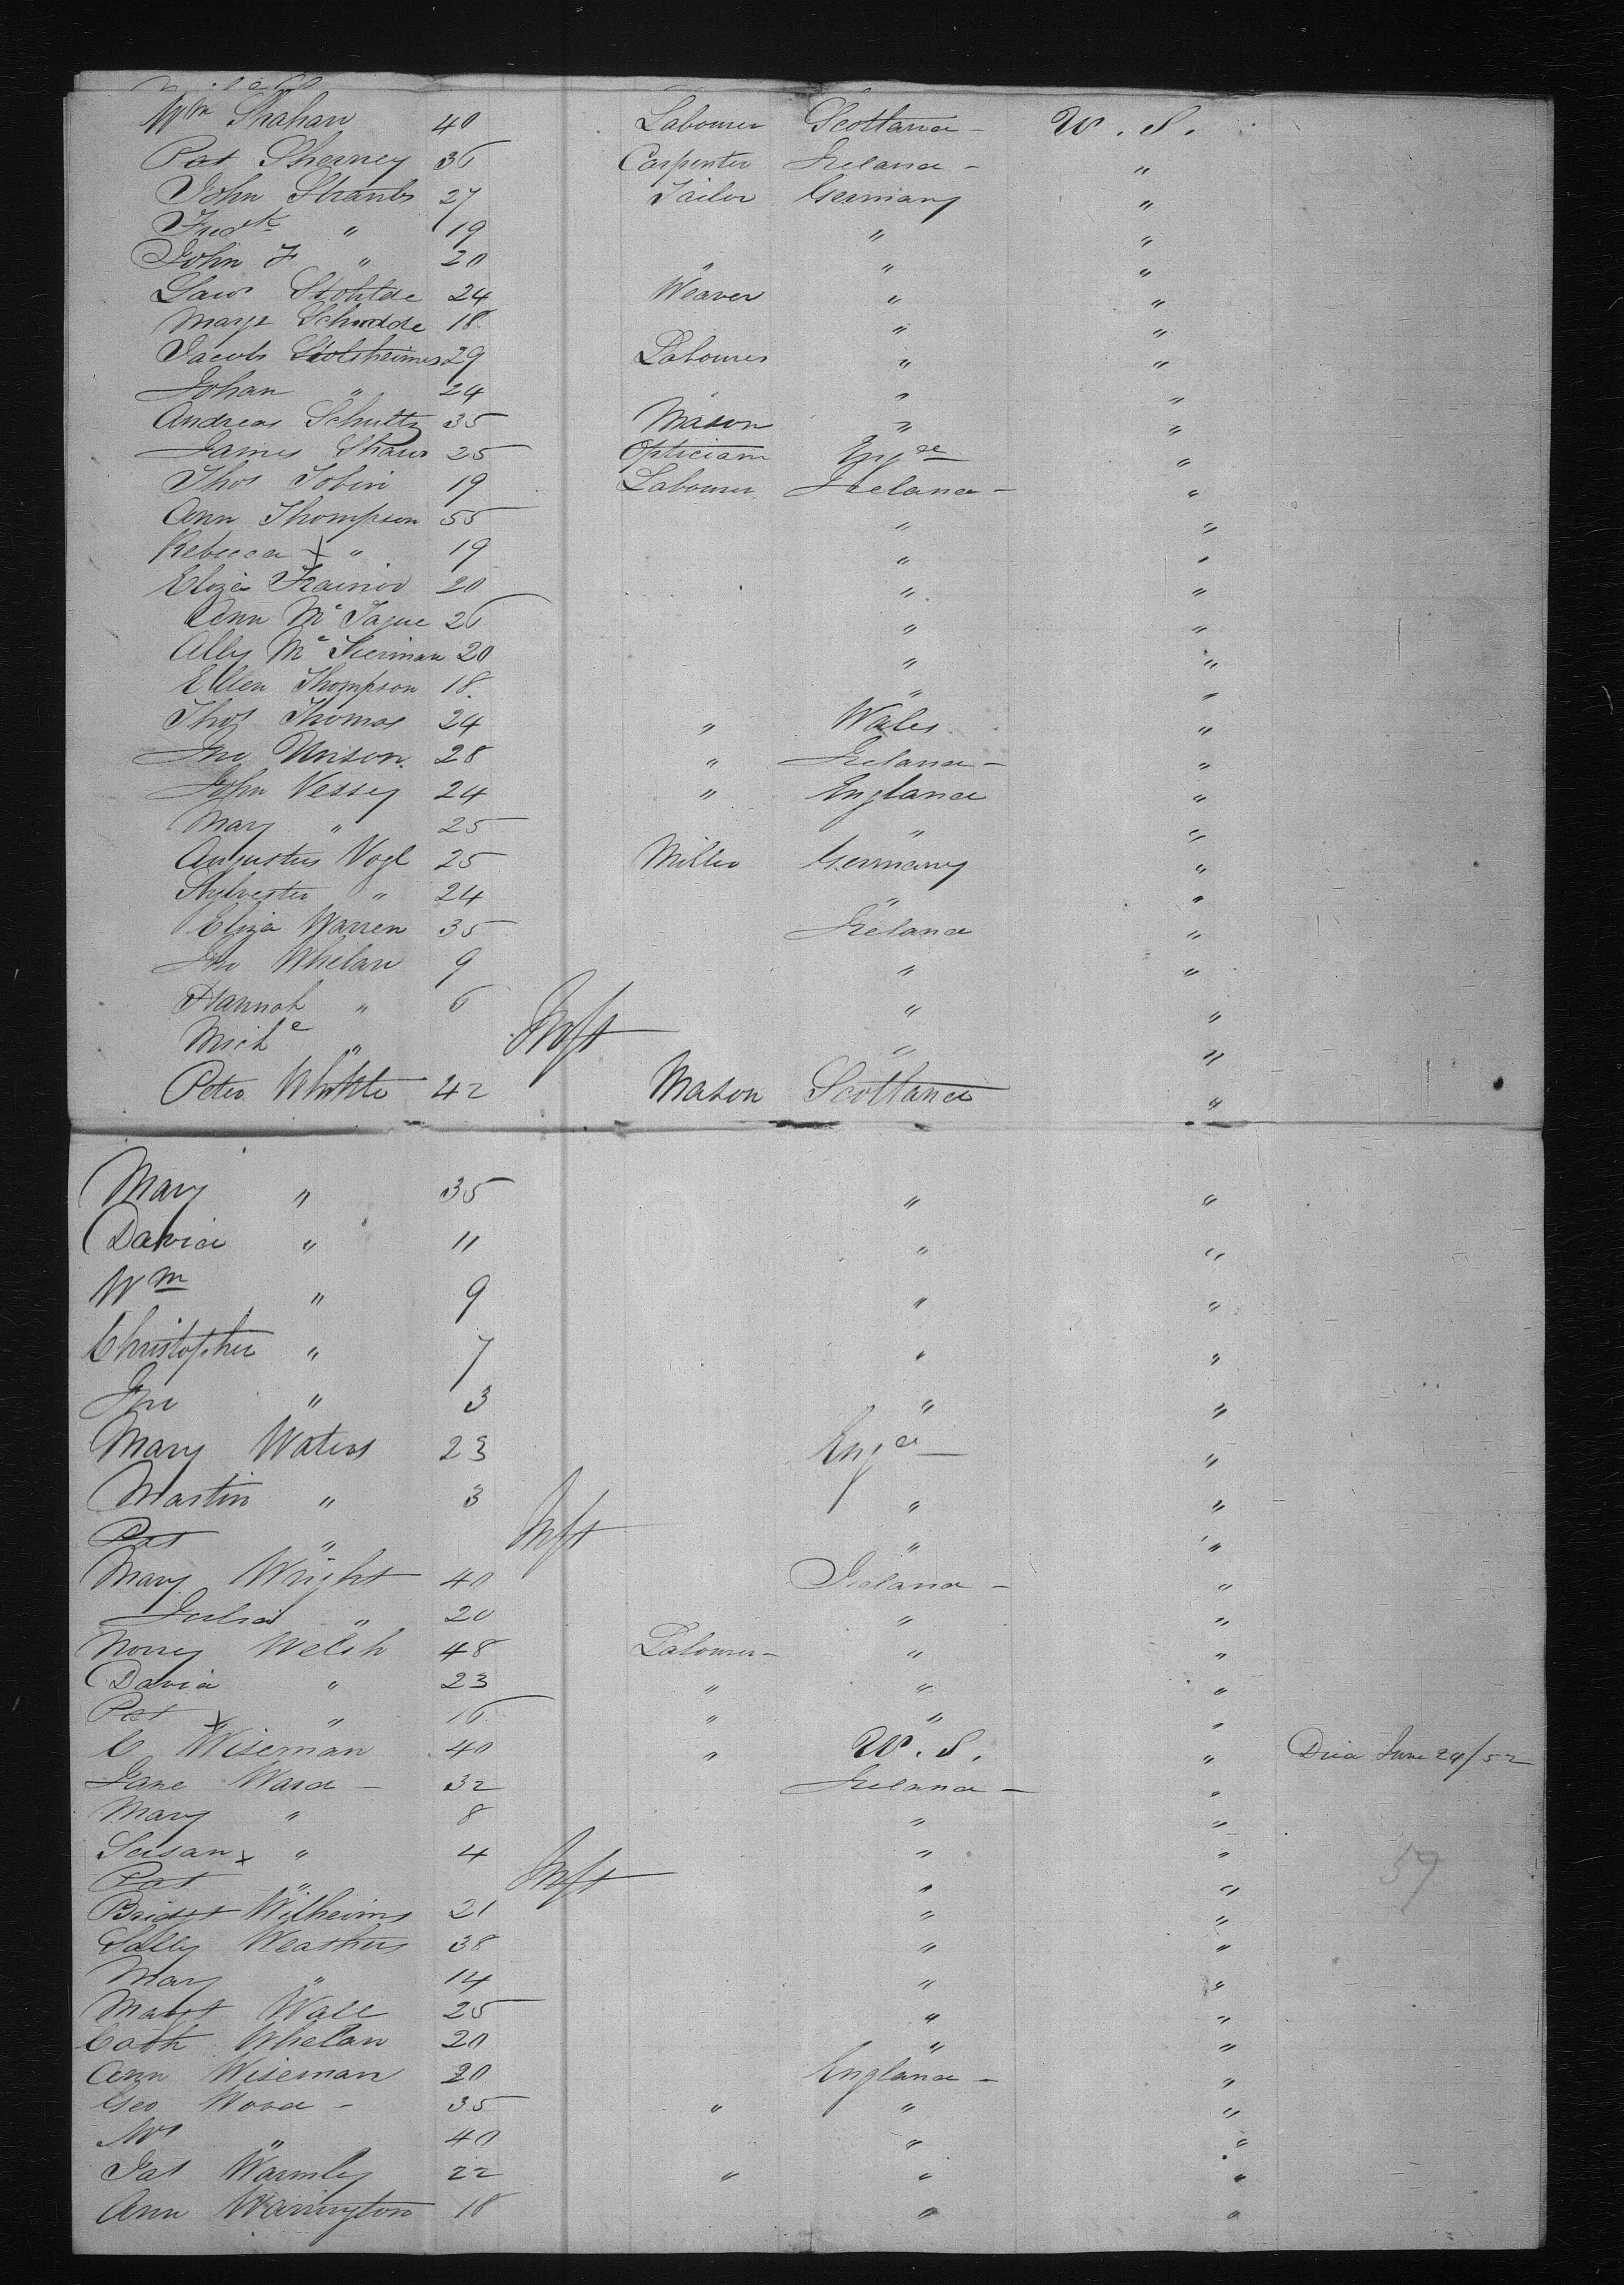 Wm Shahan 40 Labourer Scotland - U. S.
Pat Sherney 36 Carpenter Ireland - "
John Straub 27 Tailor Germany "
Fredk " 19 " "
John F " 20 " " "
24 Weaver " "
Margt Schodde 18 " "
Jacob Stolsheimer 29 Labourer " "
Johan " 24 " "
Andreas Schultz 35 Mason " "
James Shaw 25 Optician Engd "
Thos Tobin 19 Labourer Ireland - "
Ann Thompson 55 " "
Rebecca x " 19 " "
Eliza Trainor 20 " "
Ann McTague 26 " "
Ally McTierman 20 " "
Ellen Thompson 18 " "
Thos Thomas 24 " Wales "
Jno Unison 28 " Ireland - "
John Vessey 24 " England "
Mary " 25 " "
Augustus Vogl 25 Miller Germany "
Sylvester " 24 " "
Eliza Warren 35 Ireland "
Jno Whelan 9 " "
Hannah " 6 " "
Michl " Inft " "
Peter Whitte 42 Mason Scotland "
Mary " 35 " "
David " 11 " "
Wm " 9 " "
Christopher " 7 " "
Jno " 3 " "
Mary Waters 23 Engd "
Martin " 3 " "
Pat " Inft " "
Mary Wright 40 Ireland - "
Julia " 20 " "
Norry Welsh 48 Labourer - " "
David " 23 " " "
Pat x " 16 " " "
C Wiseman 40 " U. S. " Died June 24/52
Jane Ward - 32 Ireland - "
Mary " 8 " "
Susan x " 4 " "
Pat " Inft " "
Bridgt Wilheims 21 " "
Sally Weathers 38 " "
Mary " 14 " "
Margt Wall 25 " "
Cath Whelan 20 " "
Ann Wiseman 20 England - "
Geo Wood - 35 " " "
Mrs " 40 " "
Jas Warmley 22 " " "
Ann Warrington 18 " "
59